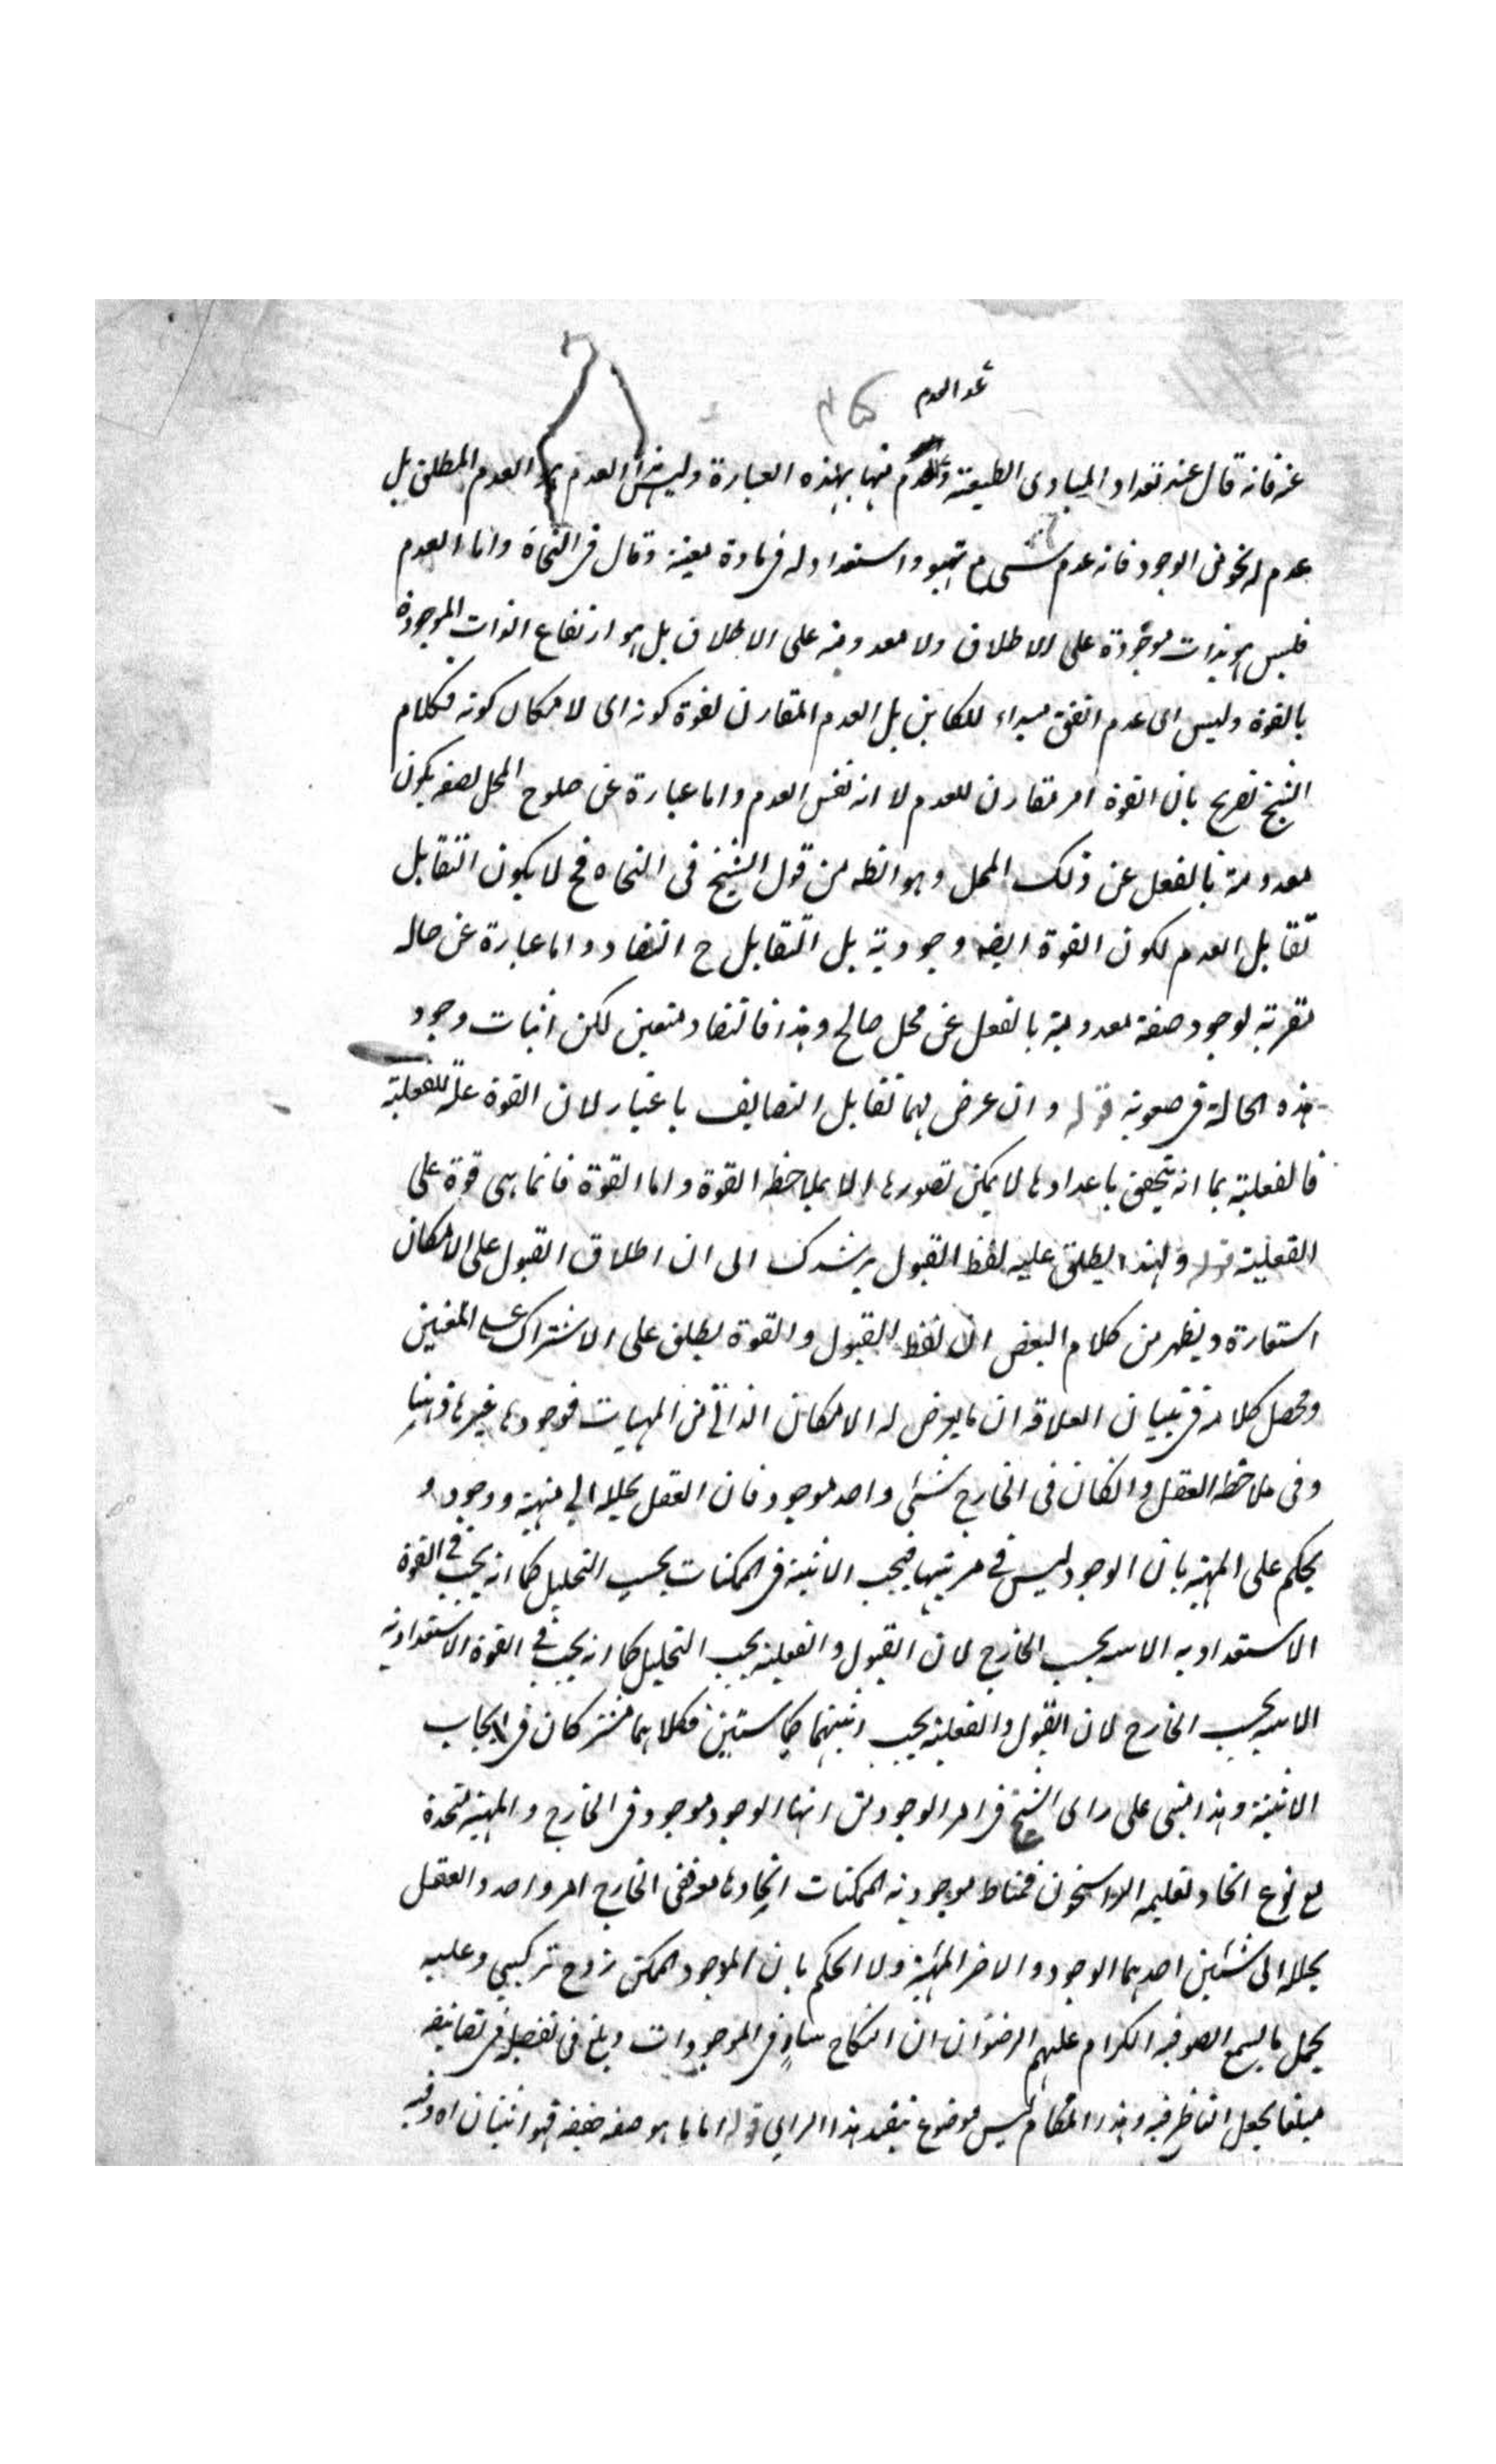 عد العدم
عنه فانه قال عند تعداد المبادى الطبيعة منها بهذه العبارة وليس هذا العدم هو العدم المطلق بل
عدم له نحو من الوجود فانه عدم شىء مع تهيوء واستعداد له فى مادة معينة وقال فى النجاة واما العدم
فليس هو بذات موجودة على الاطلاق ولا معدومة على الاطلاق بل هو ارتفاع الذات الموجودة
بالقوة وليس اى عدم اتفق مبداء للكاين بل العدم المقارن لقوة كونه اى لامكان كونه فكلام
الشيخ تصريح بان القوة امر مقارن للعدم لا انه نفس العدم واما عبارة عن صلوح المحل لصفة يكون
معدومة بالفعل عن ذلك المحل وهو الظ من قول الشيخ فى النجاه فح لا يكون التقابل
تقابل العدم لكون القوة ايضه وجودية بل التقابل ح التضاد واما عبارة عن حاله
مقربة لوجود صفة معدومة بالفعل عن محل صالح وهذا فالتضاد متعين لكن اثبات وجود
هذه الحالة فى صعوبة قوله وان عرض لهما تقابل التضايف باعتبار لان القوة علة للفعلية
فالفعلية بما انه تحقق باعدادها لا يمكن تصورها الا بملاحظة القوة واما القوة فانما هى قوة على
الفعلية قوله ولهذا يطلق عليه لفظ القبول يرشدك الى ان اطلاق القبول على الامكان
استعارة ويظهر من كلام البعض ان لفظ القبول والقوة يطلق على الاشتراك على المعنيين
ومحصل كلامه فى بيان العلاقه ان ما يعرض له الامكان الذاتى من المهيات فوجودها غيرها ذهنا
وفى ملاحظة العقل وانكان فى الخارج شئى واحد موجود فان العقل يحلله الى مهية ووجود و
يحكم على المهية بان الوجود ليس فى مرتبتها فيجب الاثنينة فى الممكنات بحسب التحليل كما انه يجب فى القوة
الاستعدادية الاسه بحسب الخارج لان القبول والفعلية بحسب التحليل كما انه يجب فى القوة الاستعدادية
الاسه بحسب الخارج لان القبول والفعلية يجب كما ستبين فكلاهما مشتركان فى ايجاب
الاثنينة وهذا مبنى على راى الشيخ فى امر الوجود من انها الوجود موجود فى الخارج والمهية متحدة
مع نوع اتحاد تعليمه الراسخون فمناط موجوديه الممكنات اتحادها معه ففى الخارج امر واحد والعقل
يحلله الى شئين احدهما الوجود والاخر المهية ولا الحكم بان الموجود الممكن زوج تركيبى وعليه
يحمل ما يسمع الصوفيه الكرام عليهم الرضوان ان النكاح سار فى الموجودات وبلغ فى تفصيله فى تصانيفه
مبلغا يجعل الناظر فيه وهذا المقام ليس موضوع تنقيد هذا الراى قوله اما ما هو صفة ضعيفة فهو اثنان اه وفيه